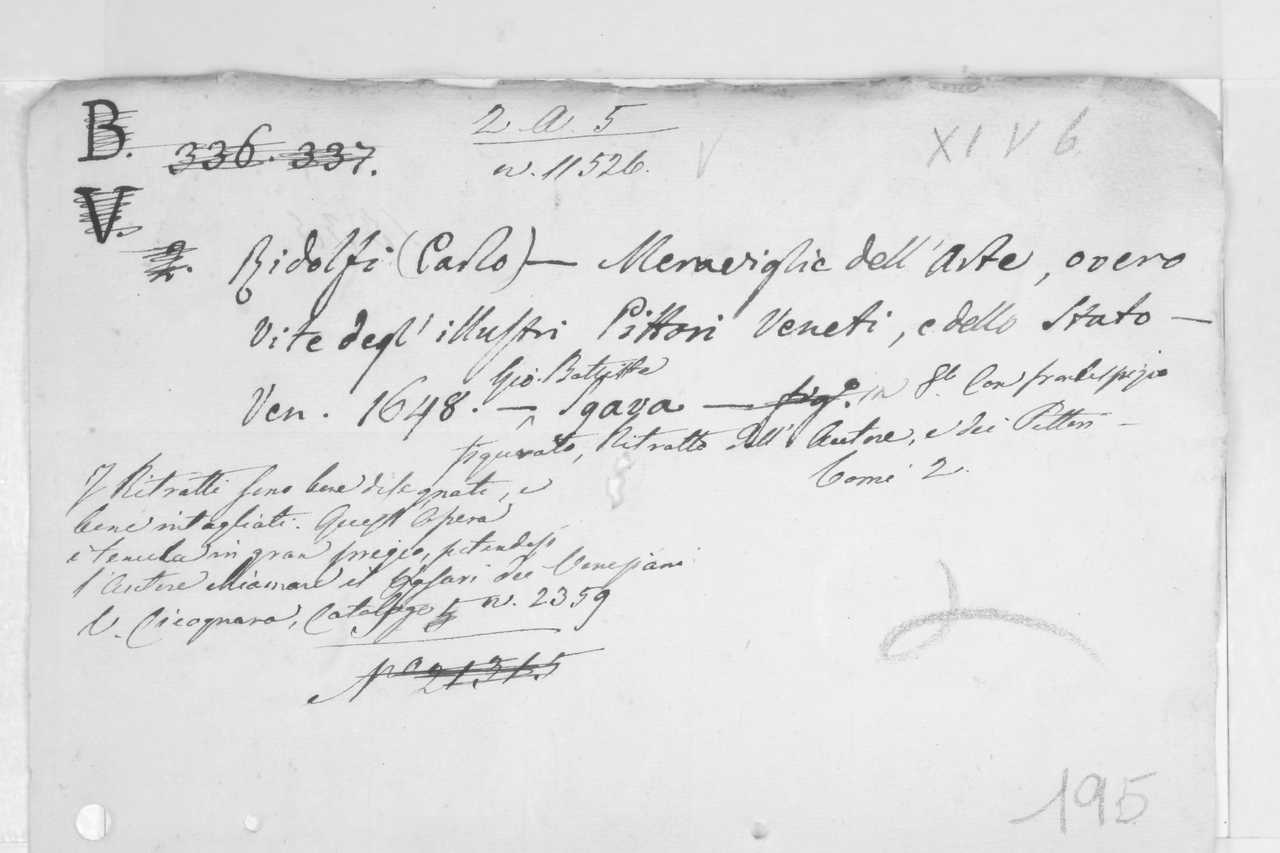 B.
336. 337.
2 A. 5
n. 11526.
V
XI V 6
V.
2.
Ridolfi (Carlo) — Meraviglie dell'Arte, overo
Vite degl' illustri Pittori Veneti, e dello Stato —
Ven. 1648. — Gio. Battista Sgava — fig.º in 8º. Con frontespizio
figurato, Ritratto dell' Autore, e dei Pittori —
Tomi 2.
I Ritratti sono bene disegnati, e
bene intagliati. Quest' Opera
è tenuta in gran pregio, potendosi
l'Autore chiamare il Vasari dei Veneziani
V. Cicognara, Catalogo n. 2359
Nº 21315
195